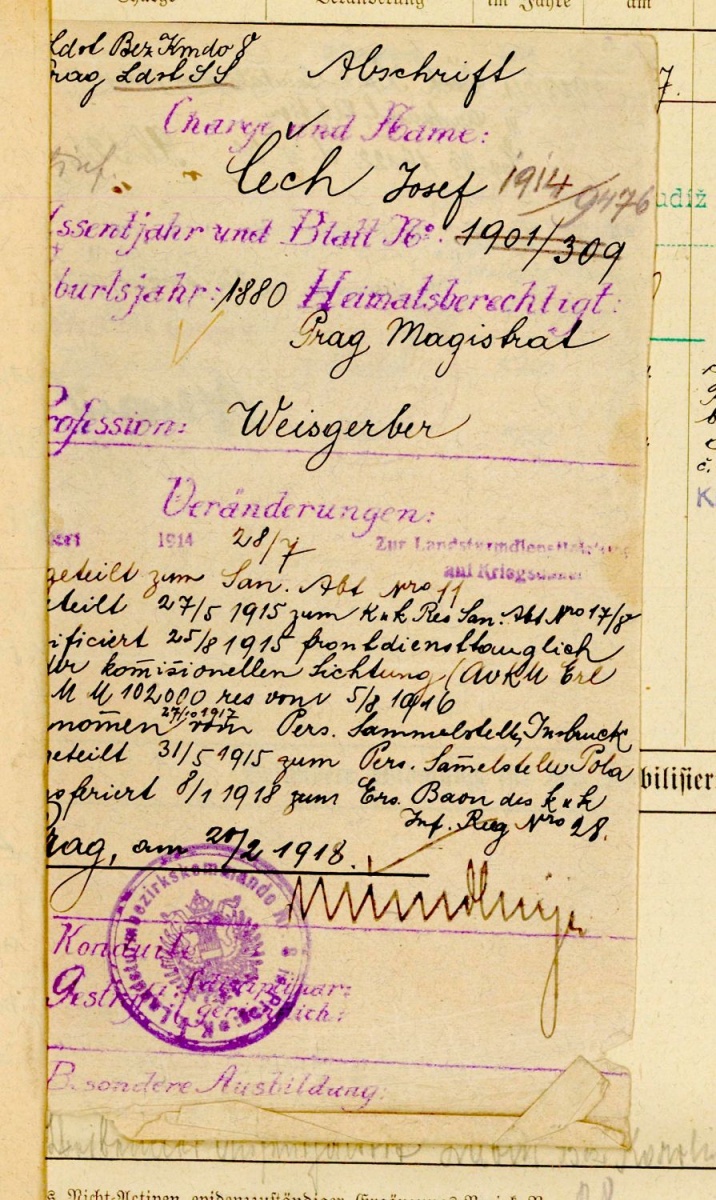 Veränderung im Jahre am
Ldst Bez Kmdo 8
Prag Ldst SS Abschrift
Charge und Name:
Čech Josef 1914 9476
ssentjahr und Blatt No. 1901/309
burtsjahr: 1880 Heimatsberechtigt:
Prag Magistrat
Profession: Weisgerber
Veränderungen:
1914 28/7 Zur Landsturmdienstleistung
auf Kriegsdauer
geteilt zum San. Abt Nro 11
teilt 27/5 1915 zum K.u.k Res San. Abt Nro 17/8
ificiert 25/8 1915 frontdiensttauglich
kom̄isionellen Sichtung (AvKM Erl
M M 102000 res vom 5/8 1916
27/10 1917
nom̄en vom Pers. Sammelstelle, Insbruck
eteilt 31/5 1915 zum Pers. Sam̄elstelle Pola
sferiert 8/1 1918 zum Ers. Baon des k u k
Inf. Reg Nro 28.
Prag, am 20/2 1918.
Konduite
disciplinar:
Gestraft gerichtlich:
Besondere Ausbildung:
bilisier